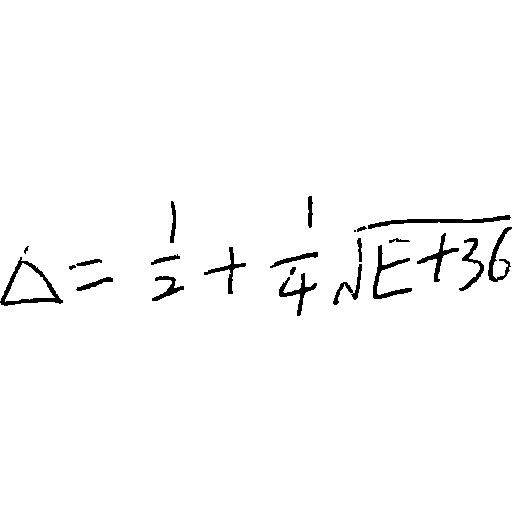 Δ = \frac{1}{2} + \frac{1}{4} \sqrt{E + 36}